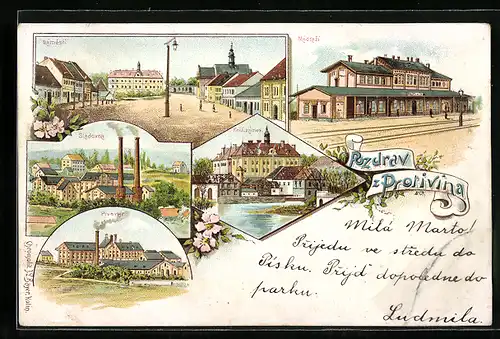 Náměstí
Nádraží
Sladovna
Pivovar
Pozdrav
z Protivína
Milá Marto!
Přijedu ve středu do
Písku. Přijď dopoledne do
parku.
Ludmila.